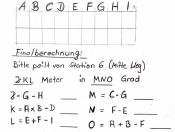 A B C D E F G H I
Finalberechnung:
Bitte peilt von Station 6 (Mitte, Weg)
JKL Meter in MNO Grad
J = G - H
M = C - G
K = A × B - D
N = F - E
L = E + F - I
O = A + B - F